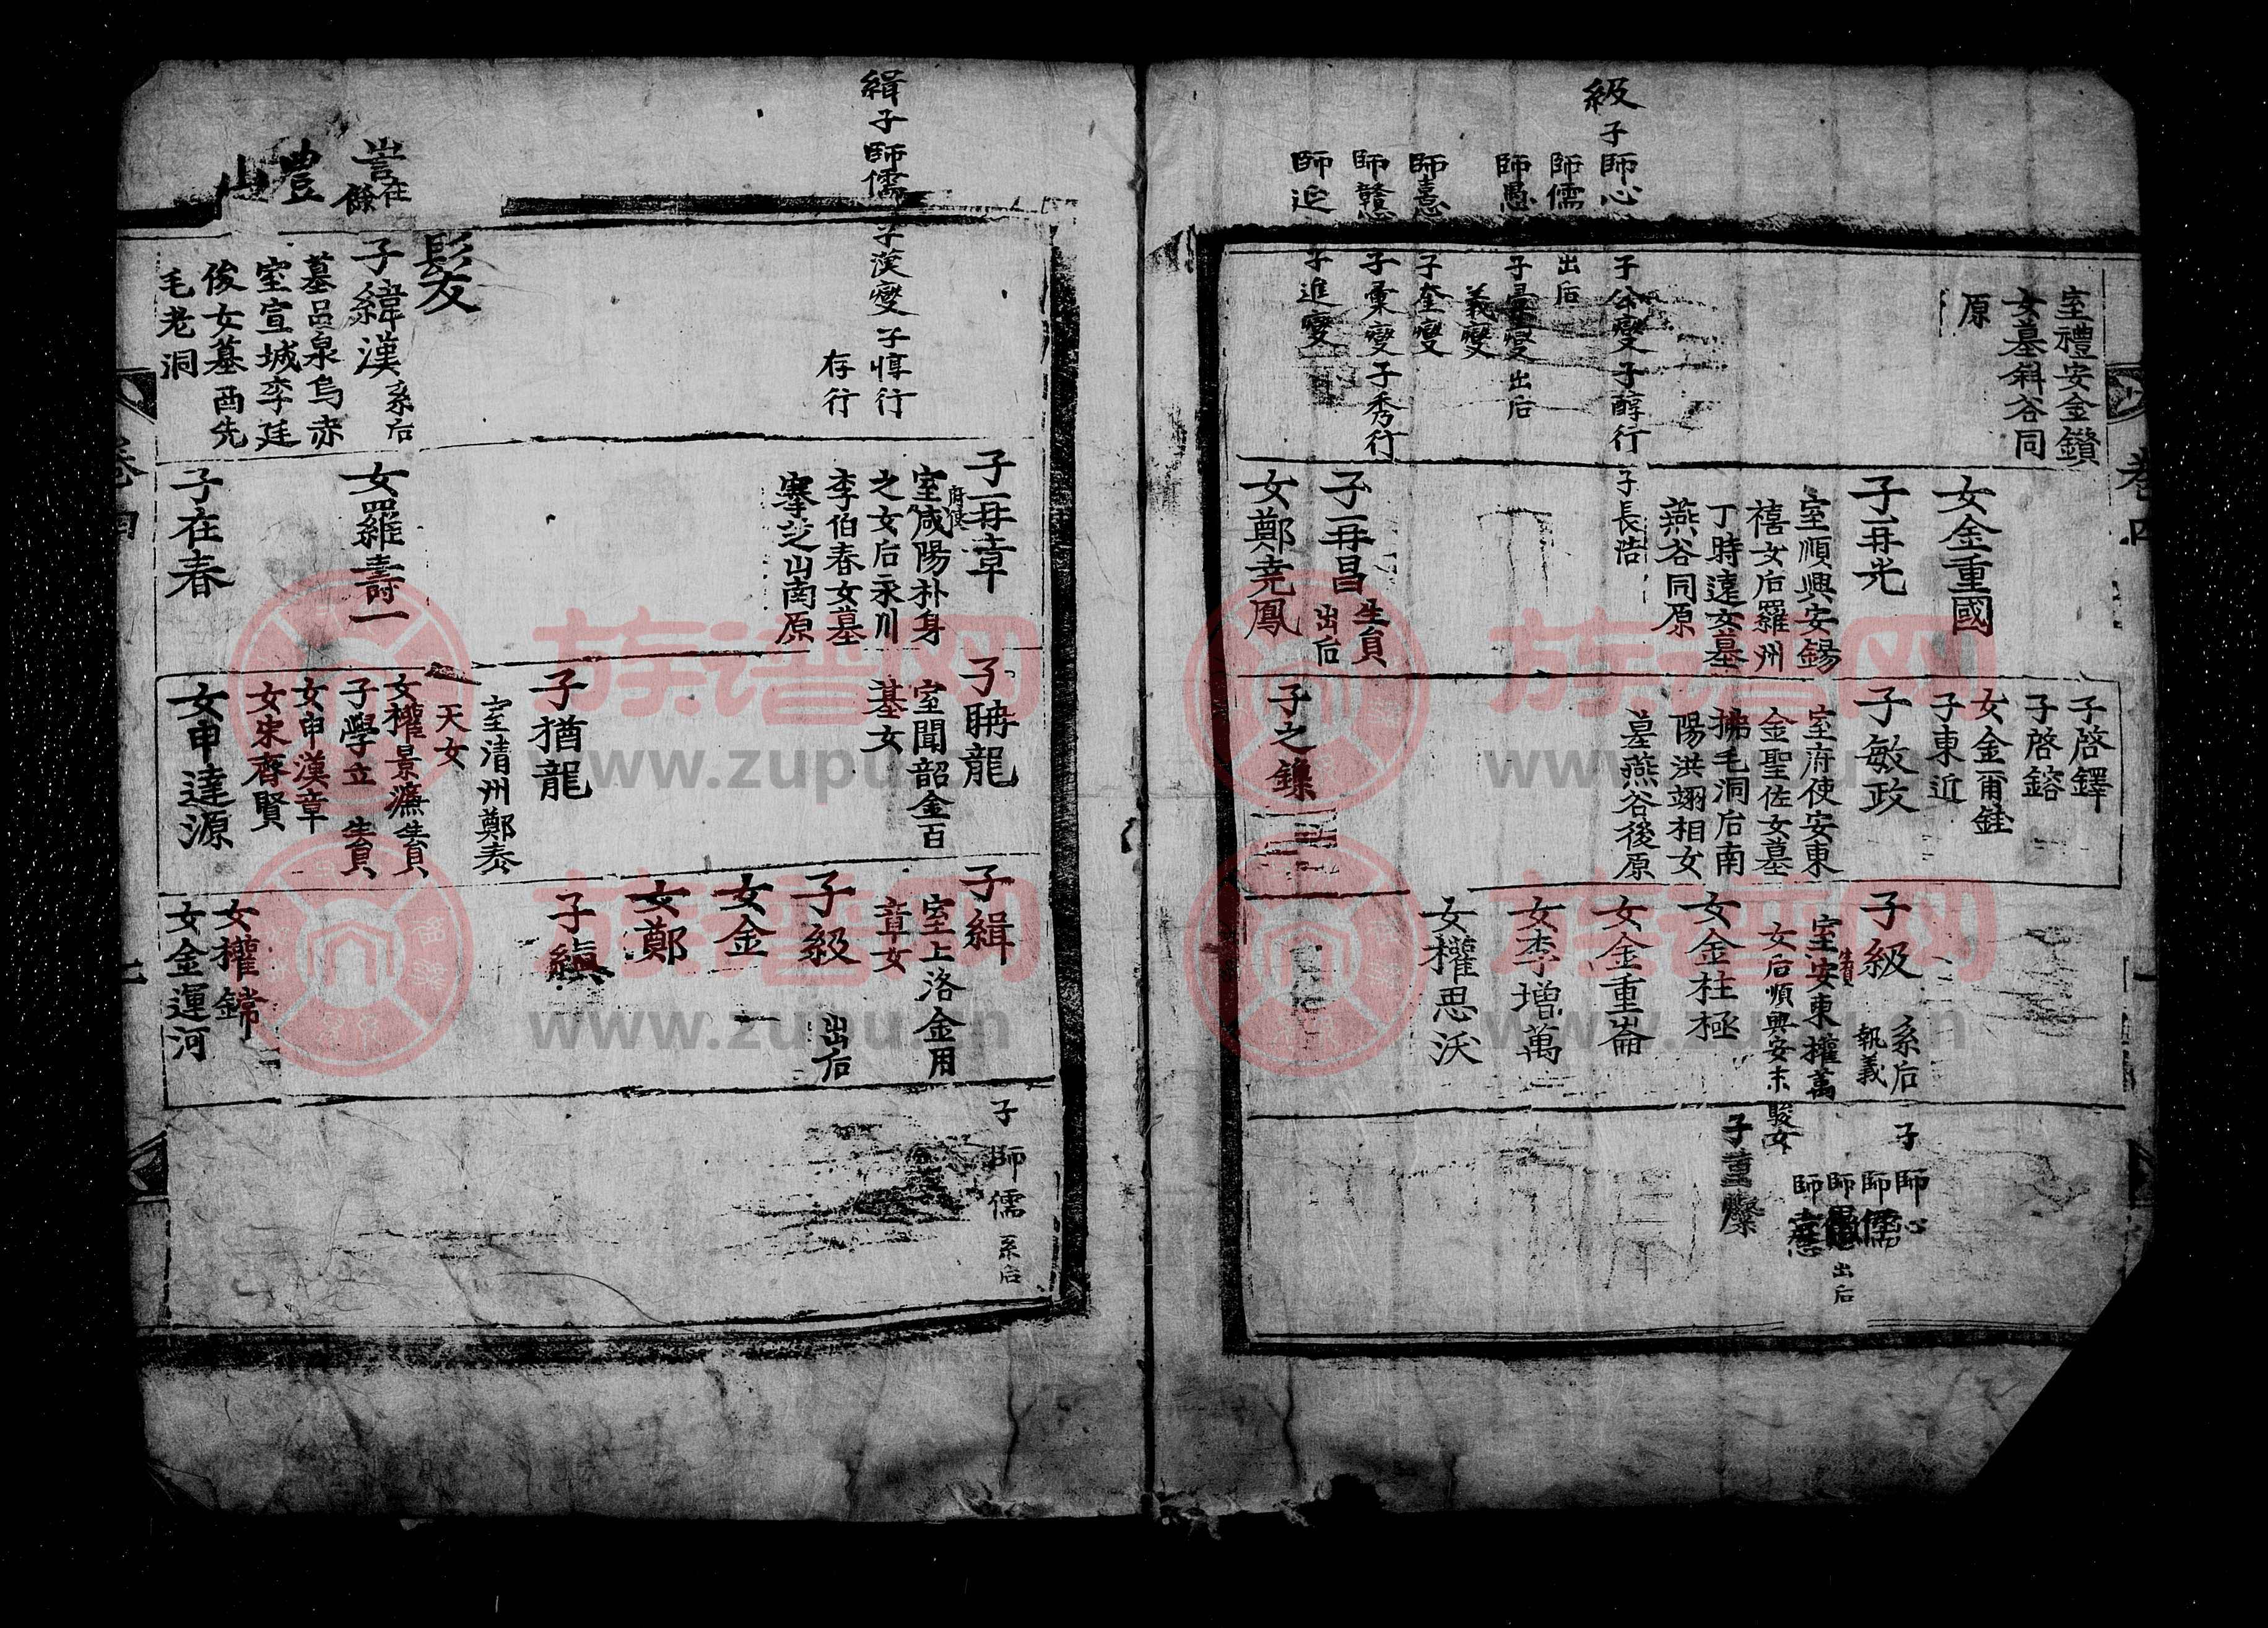 級
子師心
師儒
師愚
師憙
師贛
師近
子公燮子醇行
出后
出后
義燮
子奎燮
子彙燮子秀行
子進燮
子長浩
室禮安金鑽
女墓斜谷同
原
女金重國
子再光
室順興安錫
禧女后羅州
丁時遠女墓
燕谷同原
子再昌
生員
出后
女鄭堯鳳
子啓鐸
子啓鎔
女金爾銓
子東近
子敏政
室府使安東
金聖佐女墓
拂毛洞后南
陽洪翊相女
墓燕谷後原
子之鎳
子級
系后
執義
室安東權萬
女后順興安
駿女
女金柱極
女金重崙
女李增萬
女權思沃
子師心
師儒
師愚
出后
師憙
子董燦
緝子師儒子漢燮子惇行
存行
子再章
府使
室咸陽朴身
之女后永川
李伯春女墓
寒芝山南原
子聃龍
室聞韶金百
基女
子猶龍
室清州鄭泰
天女
子緝
室上洛金用
章女
子級
出后
女金
女鄭
子縝
子師儒
系后
訔
在
豊山
髮
子緯漢
系后
墓呂泉烏赤
室宣城李廷
俊女墓酉先
毛老洞
女羅壽一
子在春
女權景濂
生員
子學立
生員
女申漢章
女宋齊賢
女申達源
女權鏛
女金運河
www.zupu.cn
族谱网
www.zupu.cn
族谱网
www.zupu.cn
族谱网
www.zupu.cn
族谱网